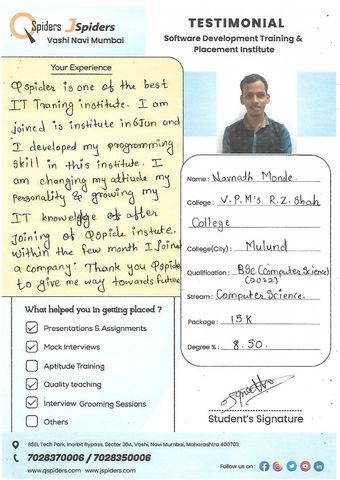 QSpiders JSpiders
Vashi Navi Mumbai
TESTIMONIAL
Software Development Training &
Placement Institute
Your Experience
Qspider is one of the best
IT Traning institute. I am
joined is institute in 6Jun and
I developed my programming
skill in this institute. I
am changing my attitude my
Personality & growing my
IT knowledge of after
Joining of Qspide institute.
within the few month I Joined
a company. Thank you Qspide
to give me way towards future
Name: Navnath Monde.
College: V.P.M's R.Z. Shah
College
College(City): Mulund
Qualification: BSc (Computer Science)
(2022)
Stream: Computer Science.
Package: 15K
Degree %: 8.50.
What helped you in getting placed ?
Presentations & Assignments
Mock Interviews
Aptitude Training
Quality teaching
Interview Grooming Sessions
Others
Student's Signature
BSEL Tech Park, Inorbit Bypass, Sector 30A, Vashi, Navi Mumbai, Maharashtra 400703
7028370006 / 7028350006
www.qspiders.com www.jspiders.com
Follow us on :